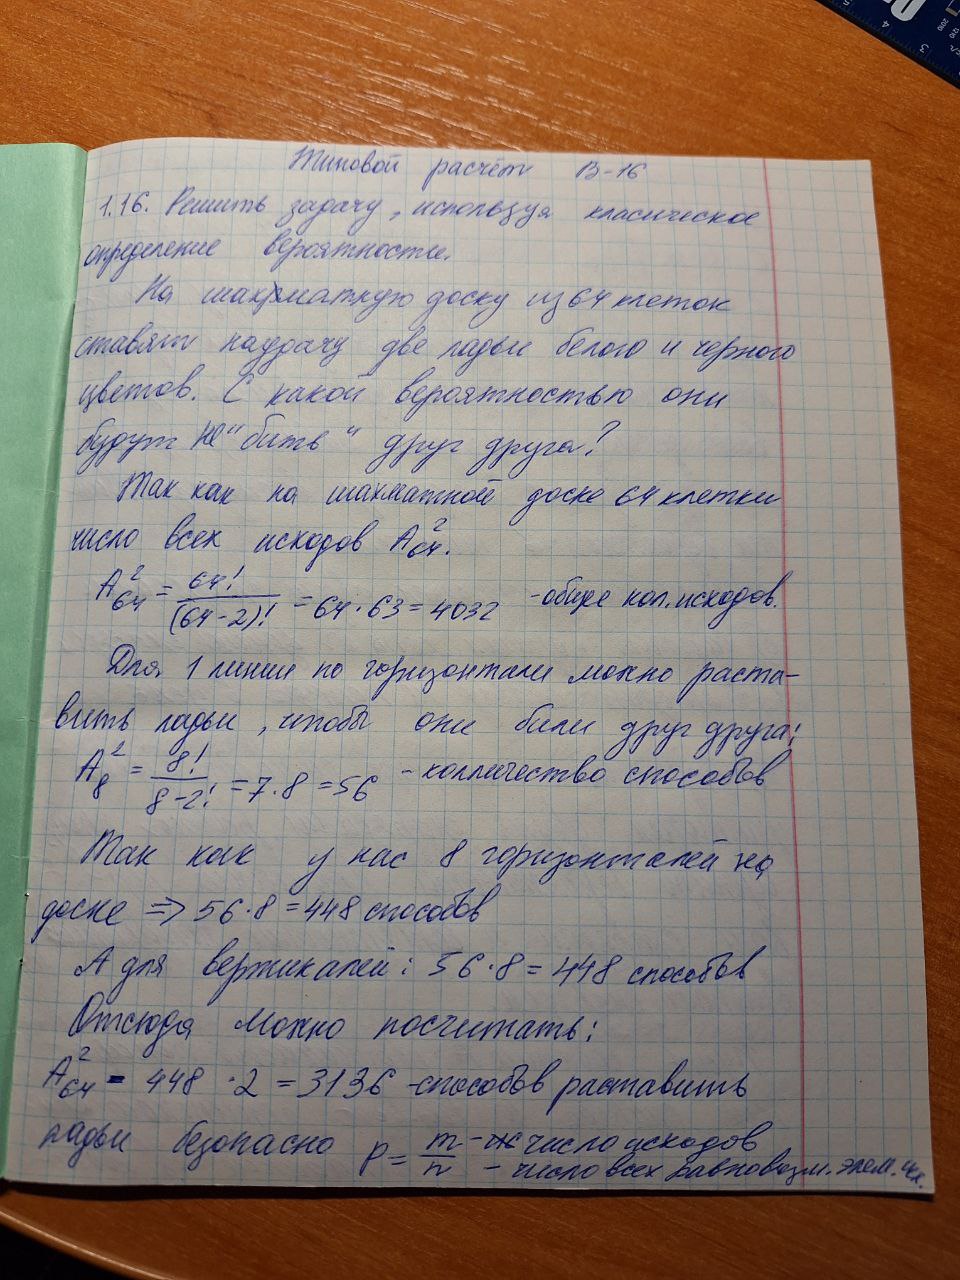 Типовой расчёт В-16
1.16. Решить задачу, используя класическое
определение вероятности.
На шахматную доску из 64 клеток
ставят наудачу две ладьи белого и черного
цветов. С какой вероятностью они
будут не "бить" друг друга?
Так как на шахматной доске 64 клетки
число всех исходов A²₆₄.
A²₆₄ = 64!/(64-2)! = 64·63 = 4032 -общее кол. исходов.
Для 1 линии по горизонтали можно раста-
вить ладьи, чтобы они били друг друга:
A²₈ = 8!/8-2! = 7·8 = 56 - колличество способов
Так как у нас 8 горизонталей на
доске => 56·8 = 448 способов
А для вертикалей: 56·8 = 448 способов
Отсюда можно посчитать:
A²₆₄ - 448·2 = 3136 -способов раставить
ладьи безопасно P = m/n - число исходов
- число всех равновозм. элем. исх.